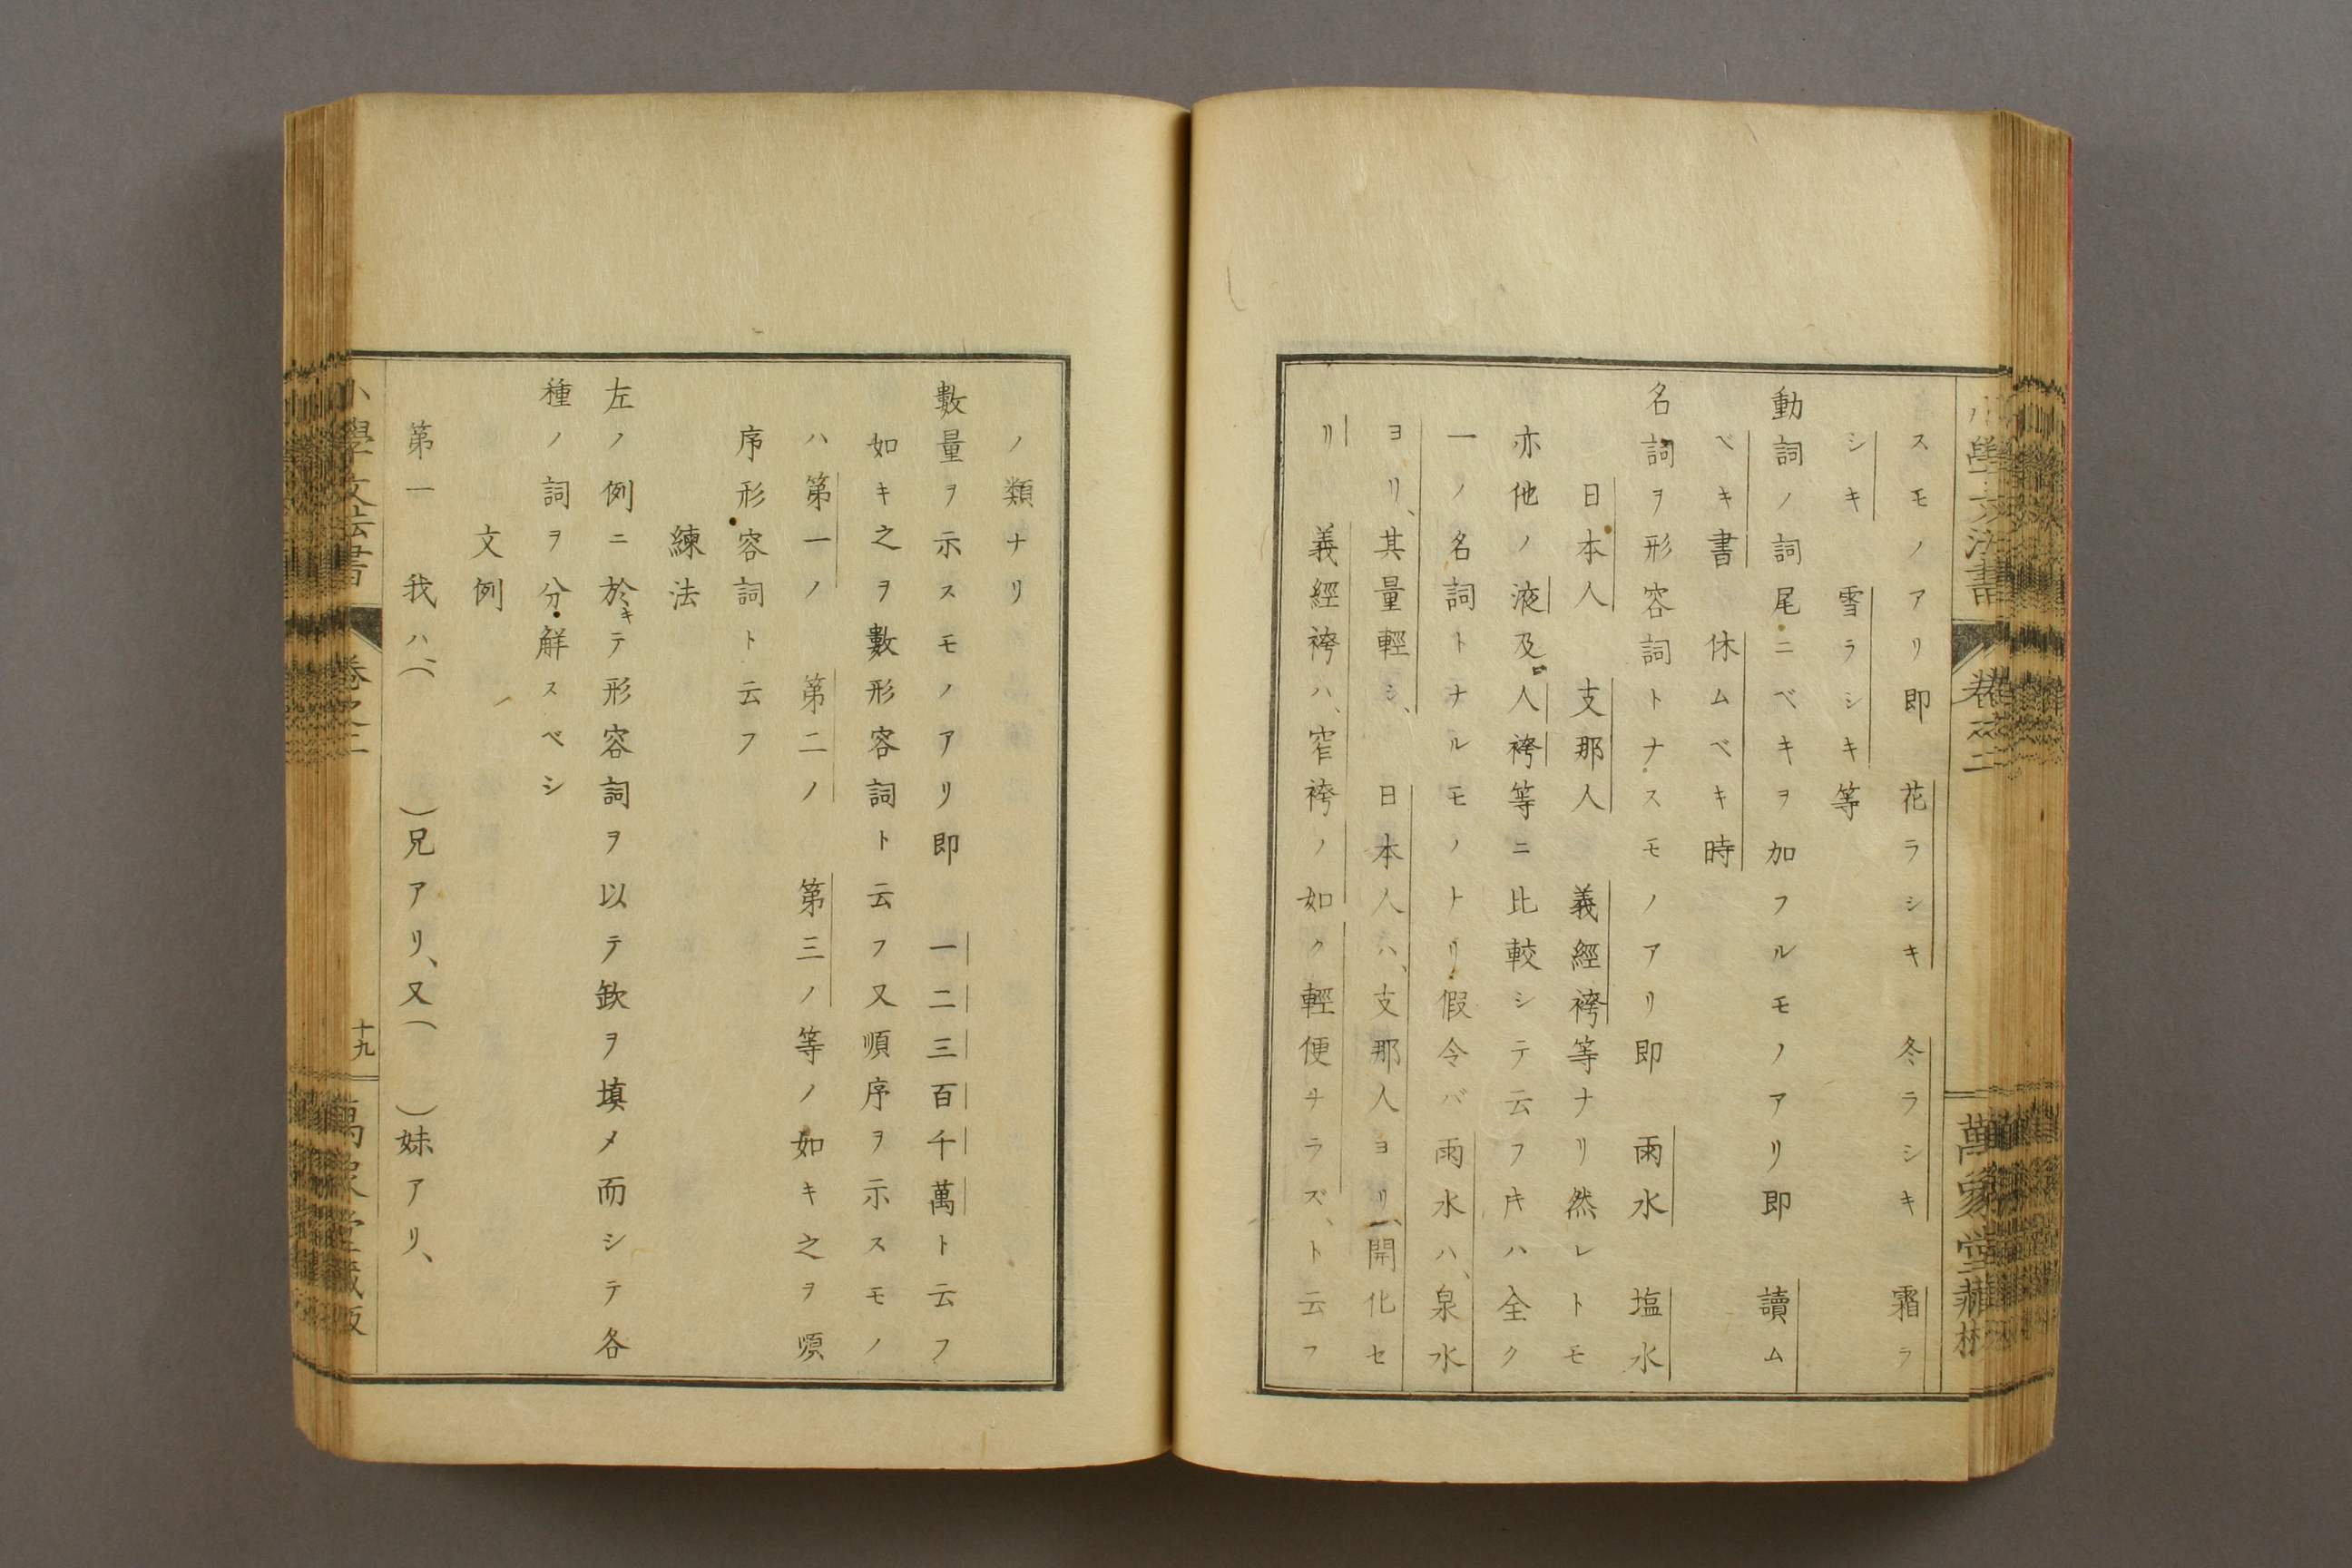 小學文法書 卷之二 萬象堂藏板
スモノアリ即 花ラシキ 冬ラシキ 霜ラ
シキ 雪ラシキ等
動詞ノ詞尾ニベキヲ加フルモノアリ即 讀ム
ベキ書 休ムベキ時
名詞ヲ形容詞トナスモノアリ即 雨水 塩水
日本人 支那人 義經袴等ナリ然レトモ
亦他ノ液及人袴等ニ比較シテ云フ𪜈ハ全ク
一ノ名詞トナルモノトリ假令バ雨水ハ、泉水
ヨリ、其量輕シ、 日本人ハ、支那人ヨリ、開化セ
リ 義經袴ハ、窄袴ノ如ク輕便ナラズ、ト云フ
ノ類ナリ
數量ヲ示スモノアリ即 一二三百千萬ト云フ
如キ之ヲ數形容詞ト云フ又順序ヲ示スモノ
ハ第一ノ 第二ノ 第三ノ等ノ如キ之ヲ順
序形容詞ト云フ
練法
左ノ例ニ於キテ形容詞ヲ以テ欽ヲ填メ而シテ各
種ノ詞ヲ分解スベシ
文例
第一 我ハ、( )兄アリ、又( )妹アリ、
小學文法書 卷之二 十九 萬象堂藏板